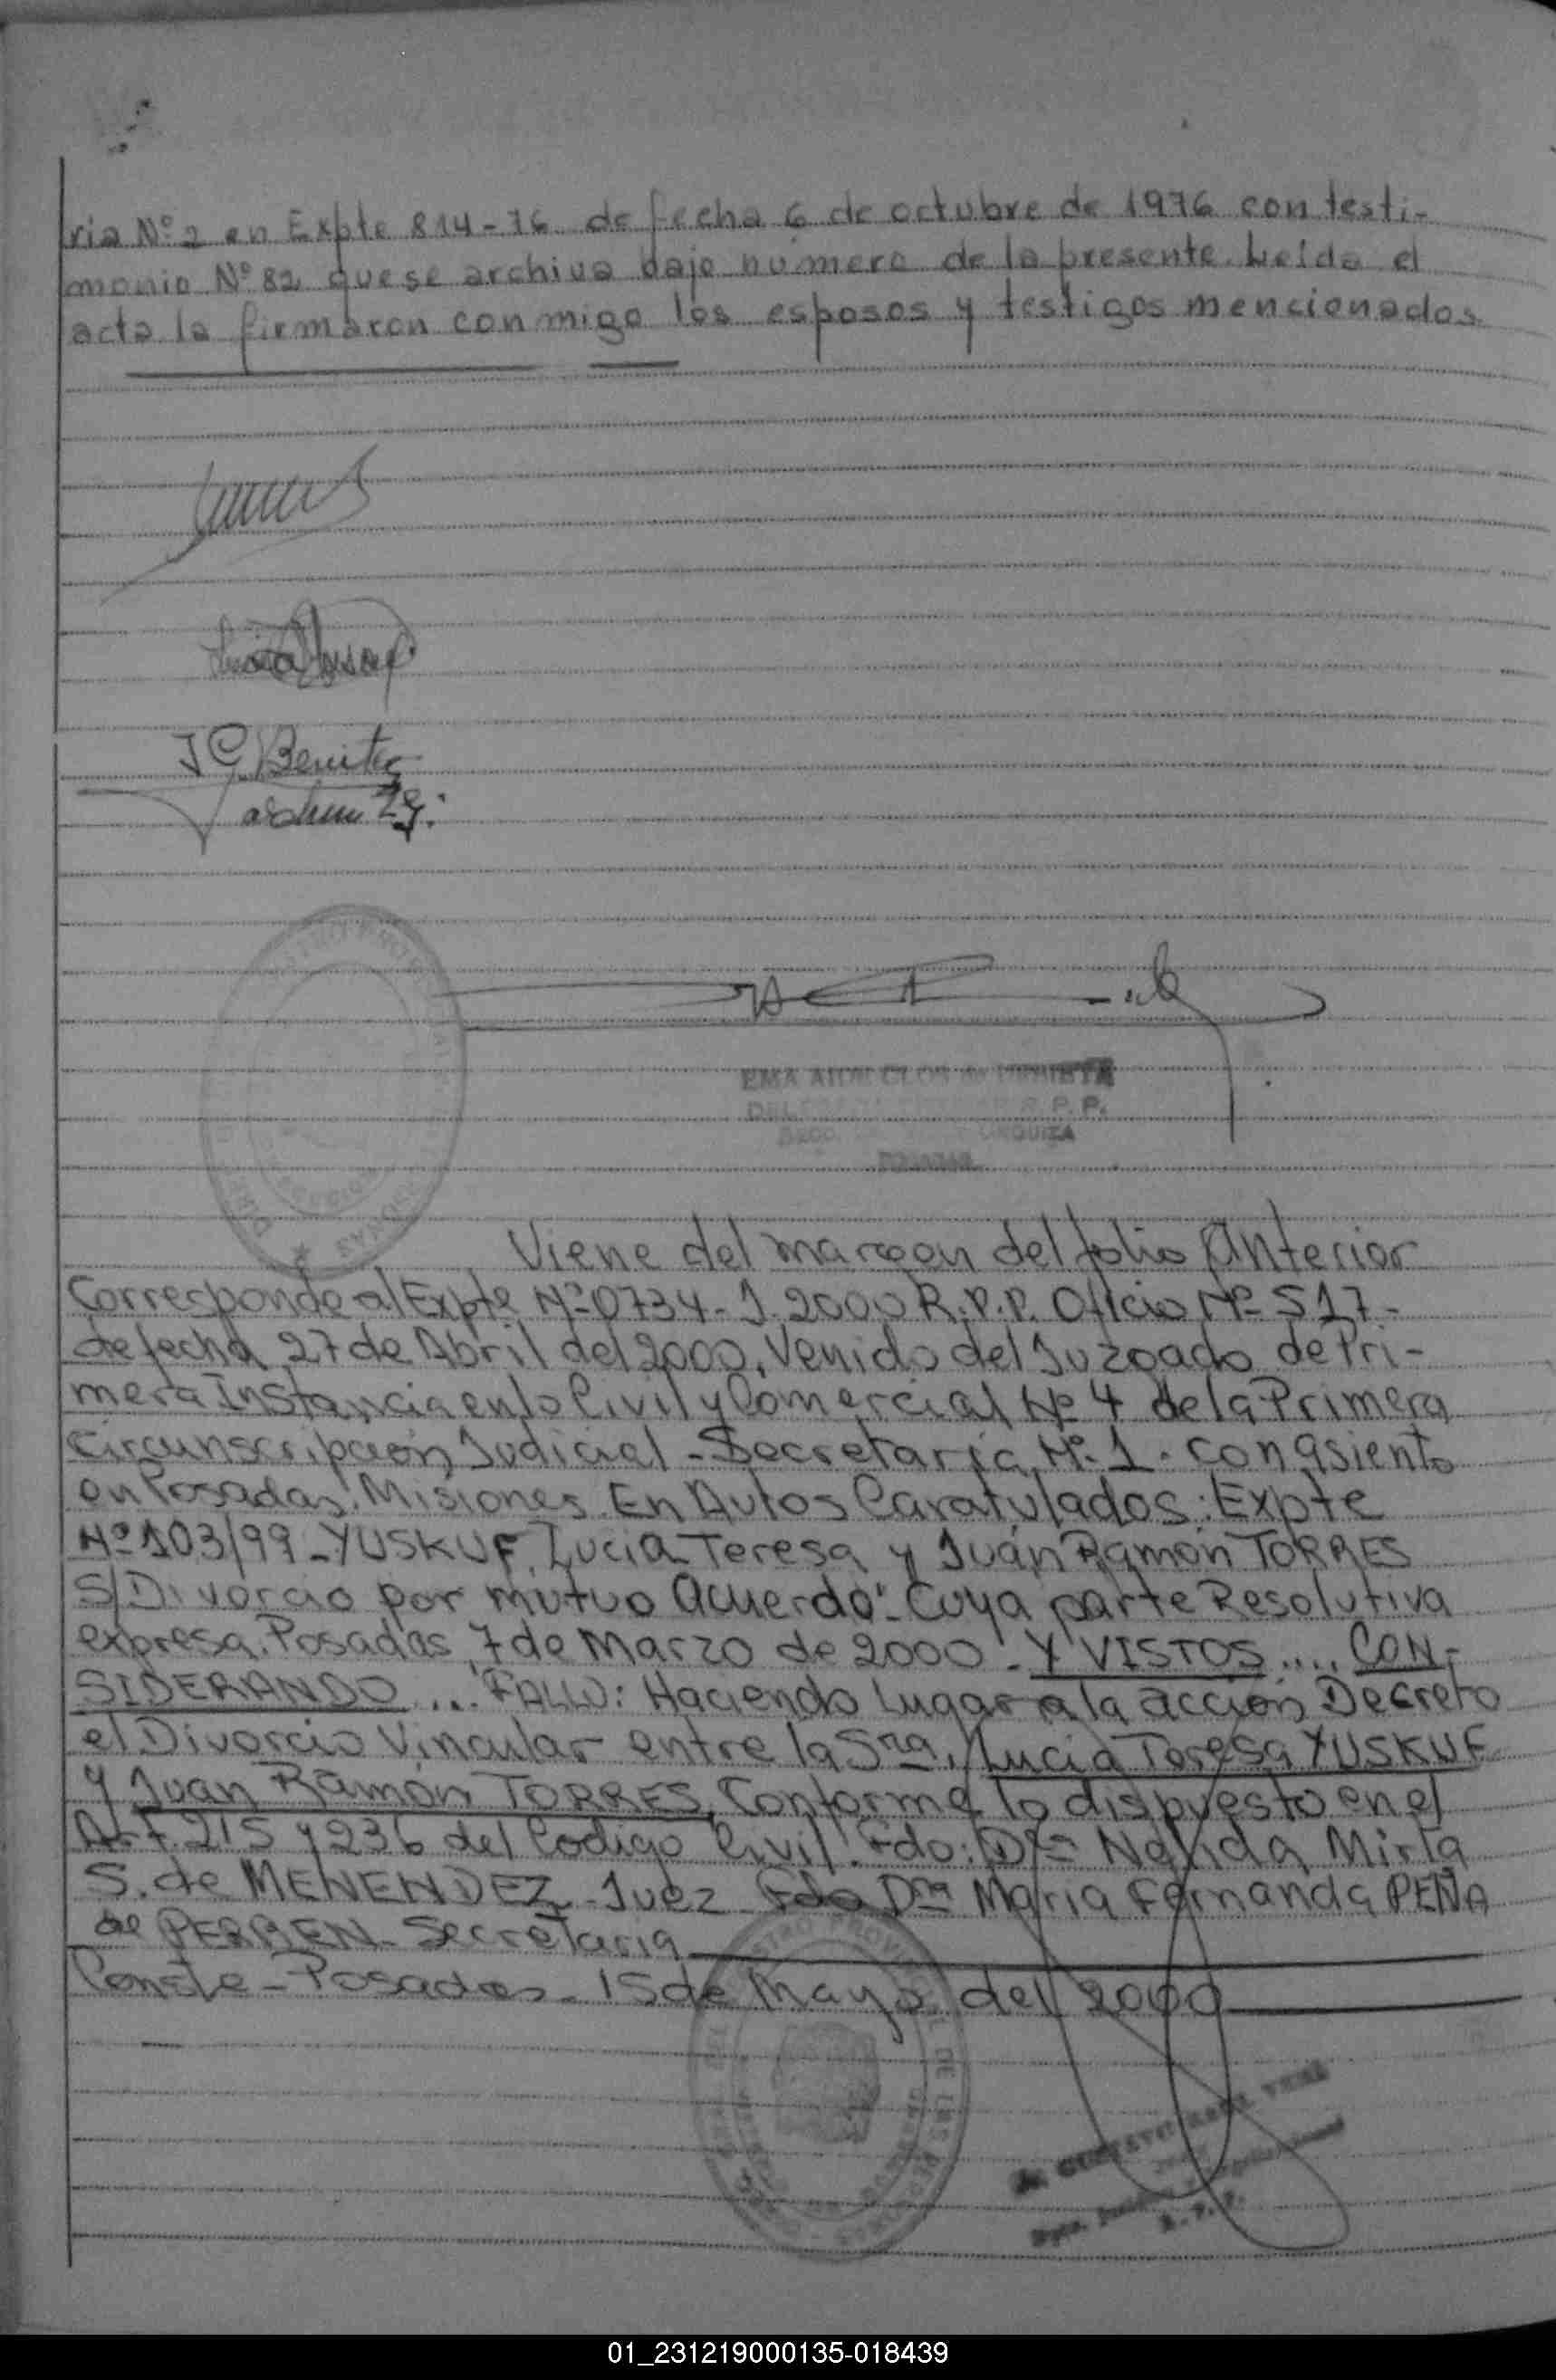 ria Nº 2 en Expte 814-76 de fecha 6 de octubre de 1976 con testi-
monio Nº 82 que se archiva bajo número de la presente. Leída el
acta la firmaron conmigo los esposos y testigos mencionados
J G Benitez
EMA CLOS de
R. P. P.
URQUIZA
POSADAS
Viene del margen del folio Anterior
Corresponde al Expte Nº 0734-J.2000 R.P.P. Oficio Nº 517-
de fecha 27 de Abril del 2000, Venido del Juzgado de Pri-
mera Instancia en lo Civil y Comercial Nº 4 de la Primera
Circunscripción Judicial - Secretaría Nº 1. con asiento
en Posadas. Misiones. En Autos Caratulados: Expte
Nº 103/99 - YUSKUF, Lucia Teresa y Juán Ramon TORRES
S/Divorcio por mutuo Acuerdo". Cuya parte Resolutiva
expresa. Posadas, 7 de Marzo de 2000. Y VISTOS .... CON-
SIDERANDO .... FALLO: Haciendo Lugar a la acción Decreto
el Divorcio Vincular entre la Sra. Lucia Teresa YUSKUF
y Juan Ramón TORRES, Conforme lo dispuesto en el
Art. 215 y 236 del Codigo Civil. Fdo: Dra Nélida Mirta
S. de MENENDEZ - Juez Fdo Dra Maria Fernanda PEÑA
de PERREN - Secretaria
Conste - Posadas - 15 de Mayo del 2000
R. P. P.
01_231219000135-018439